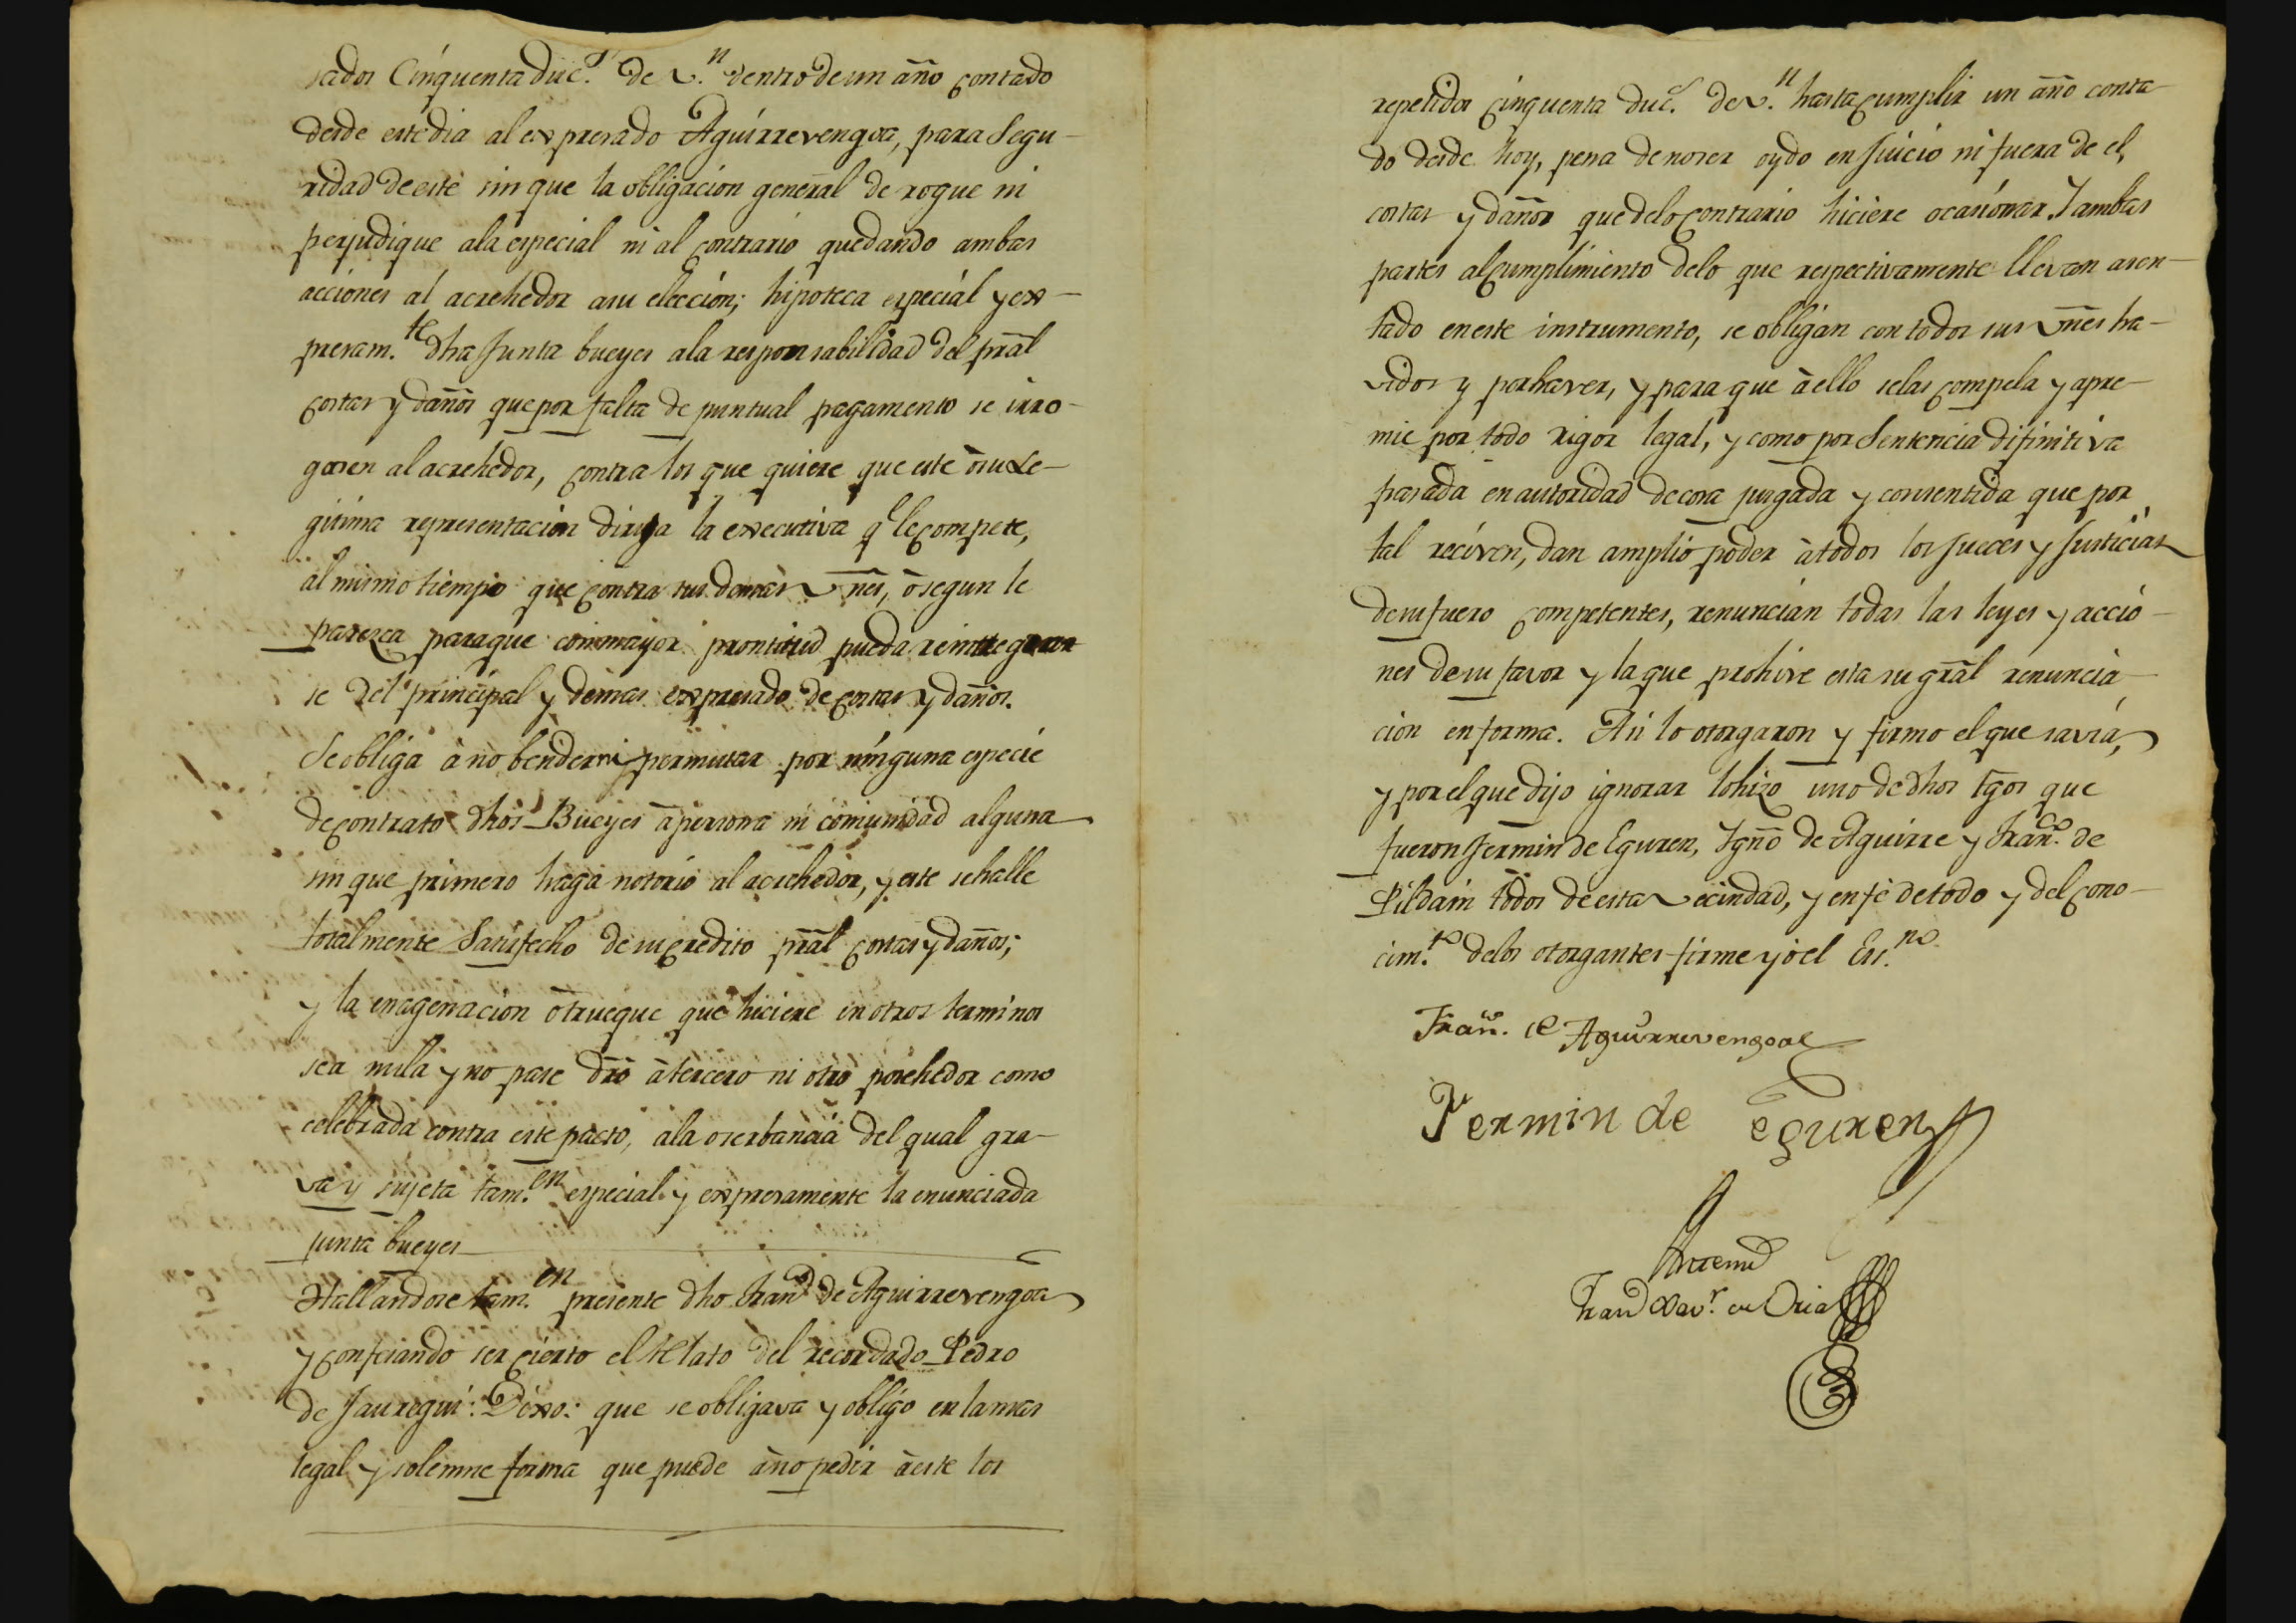 sados Cinquenta duc.s de v.n dentro de un año contado
desde este dia al expresado Aguirrevengoa, para Segu-
ridad de este sin que la obligacion general derogue ni
perjudique ala especial ni al contrario quedando ambas
acciones al acrehedor asu eleccion; hipoteca especial y ex-
presam.te dha Junta bueyes ala responsabilidad del pral
costas y daños que por falta de puntual pagamento se irro-
gasen al acrehedor, contra los que quiere que este ò su Le-
gitima representacion dirija la executiva q.e le compete,
al mismo tiempo que contra sus demas vnes, ò segun le
paresca paraque con mayor prontitud pueda reintegrar
se del principal y demas expresado de costas y daños.
Se obliga à no bender ni permutar por ninguna especie
de contrato dhos Bueyes à persona ni comunidad alguna
sin que primero haga notorio al acrehedor, y este se halle
totalmente Satisfecho de su credito pral costas y daños;
y la enagenacion ò trueque que hiciere en otros terminos
sea nula y no pase dro à tercero ni otro posehedor como
celebrada contra este pacto, ala oserbancia del qual gra-
va y sujeta tam.en especial y expresamente la enunciada
junta bueyes
Hallandose tam.en presente dho Fran.co de Aguirrevengoa
y confesando ser cierto el relato del recordado Pedro
de Jauregui: Dixo: que se obligava y obligo en la mas
legal y solemne forma que puede à no pedir à este los
repetidos cinquenta duc.s de v.n hasta cumplir un año conta-
do desde hoy, pena de no ser oydo en Juicio ni fuera de el,
costas y daños que de lo contrario hiciere ocasionar. Y ambas
partes al cumplimiento de lo que respectivamente llevan asen-
tado en este instrumento, se obligan con todos sus vnes ha-
vidos y por haver, y para que à ello se las compela y apre-
mie por todo rigor legal, y como por Sentencia difinitiva
pasada en autoridad de cosa jusgada y consentida que por
tal reciven, dan amplio poder à todos los Jueces y Justicias
de su fuero competentes, renuncian todas las leyes y accio-
nes de su favor y la que prohive esta su gral renuncia-
cion en forma. Asi lo otorgaron y firmo el que savia,
y por el que dijo ignorar lo hizo uno de dhos tgos que
fueron Fermin de Eguren, Ygno de Aguirre y Fran.co de
Pildain todos de esta vecindad, y en fe de todo y del cono-
cim.to delos otorgantes firme yo el Ess.no
Fran.co de Aguirrevengoa
Fermin de eguren
Ante mi
Fran.co Xav.r de Oria